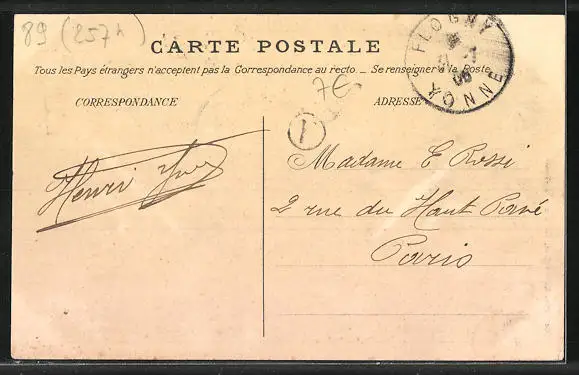 89 (257h)
CARTE POSTALE
Tous les Pays étrangers n'acceptent pas la Correspondance au recto. _ Se renseigner à la Poste
7€
CORRESPONDANCE
ADRESSE
FLOGNY
06
YONNE
1
Henri
Madame E Rossi
2 rue du Haut Pavé
Paris